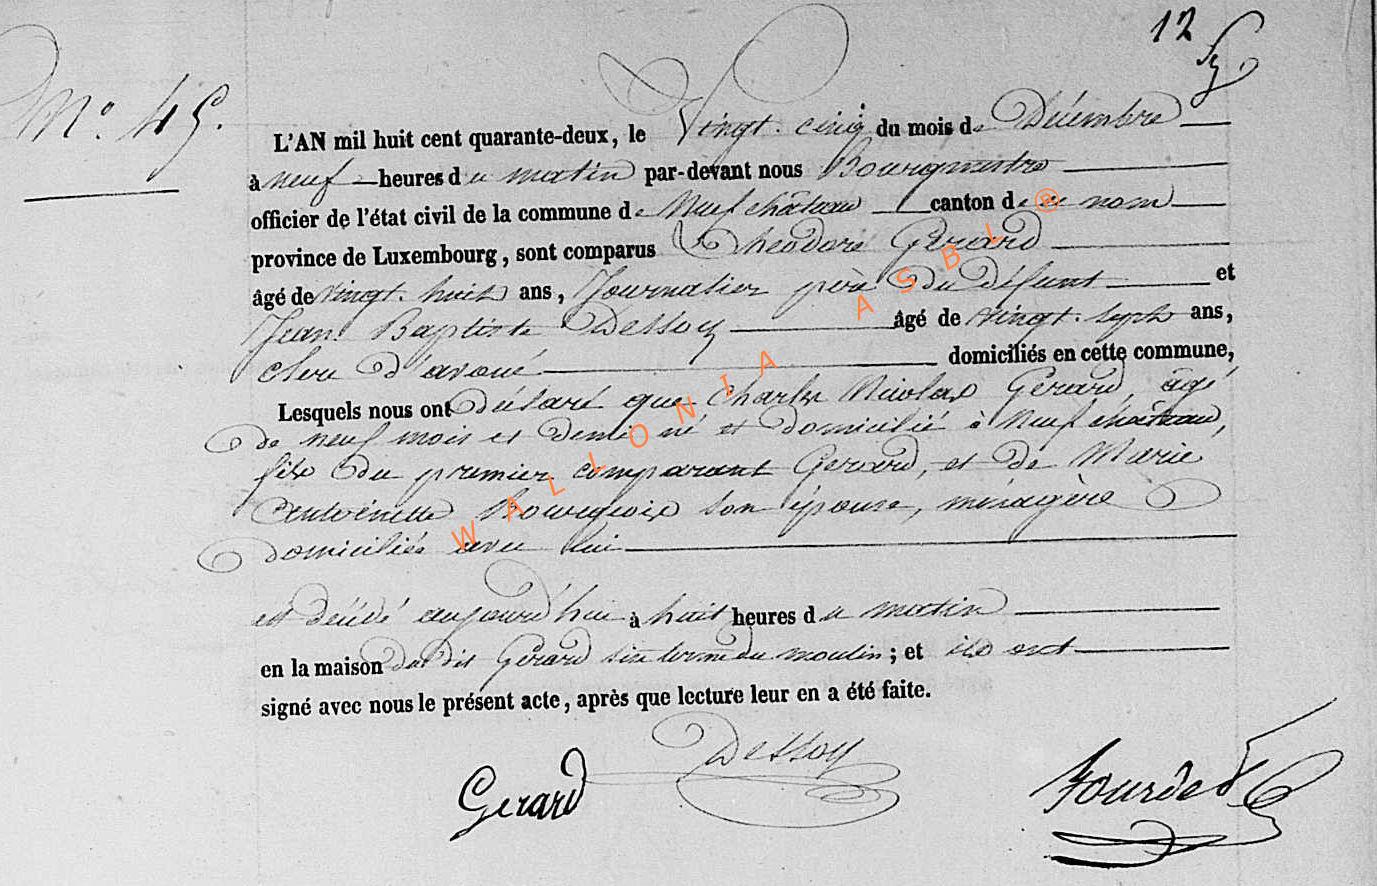 12
N° 45.
L'AN mil huit cent quarante-deux, le Vingt-cinq du mois de Décembre
à neuf heures du matin par-devant nous Bourgmestre
officier de l'état civil de la commune de Neufchâteau canton de ce nom
province de Luxembourg, sont comparus Théodore Gérard
âgé de vingt-huit ans, Journalier père du défunt et
Jean Baptiste Dessoy âgé de vingt-sept ans,
clerc d'avoué domiciliés en cette commune,
Lesquels nous ont déclaré que Charles Nicolas Gérard, âgé
de neuf mois et demi né et domicilié à Neufchâteau,
fils du premier comparant Gérard, et de Marie
Antoinette Bourgeois son épouse, ménagère
domiciliée avec lui
est décédé aujourd'hui à huit heures du matin
en la maison du dit Gérard du moulin; et ils ont
signé avec nous le présent acte, après que lecture leur en a été faite.
Gerard
Dessoy
WALLONIA ASBL ®